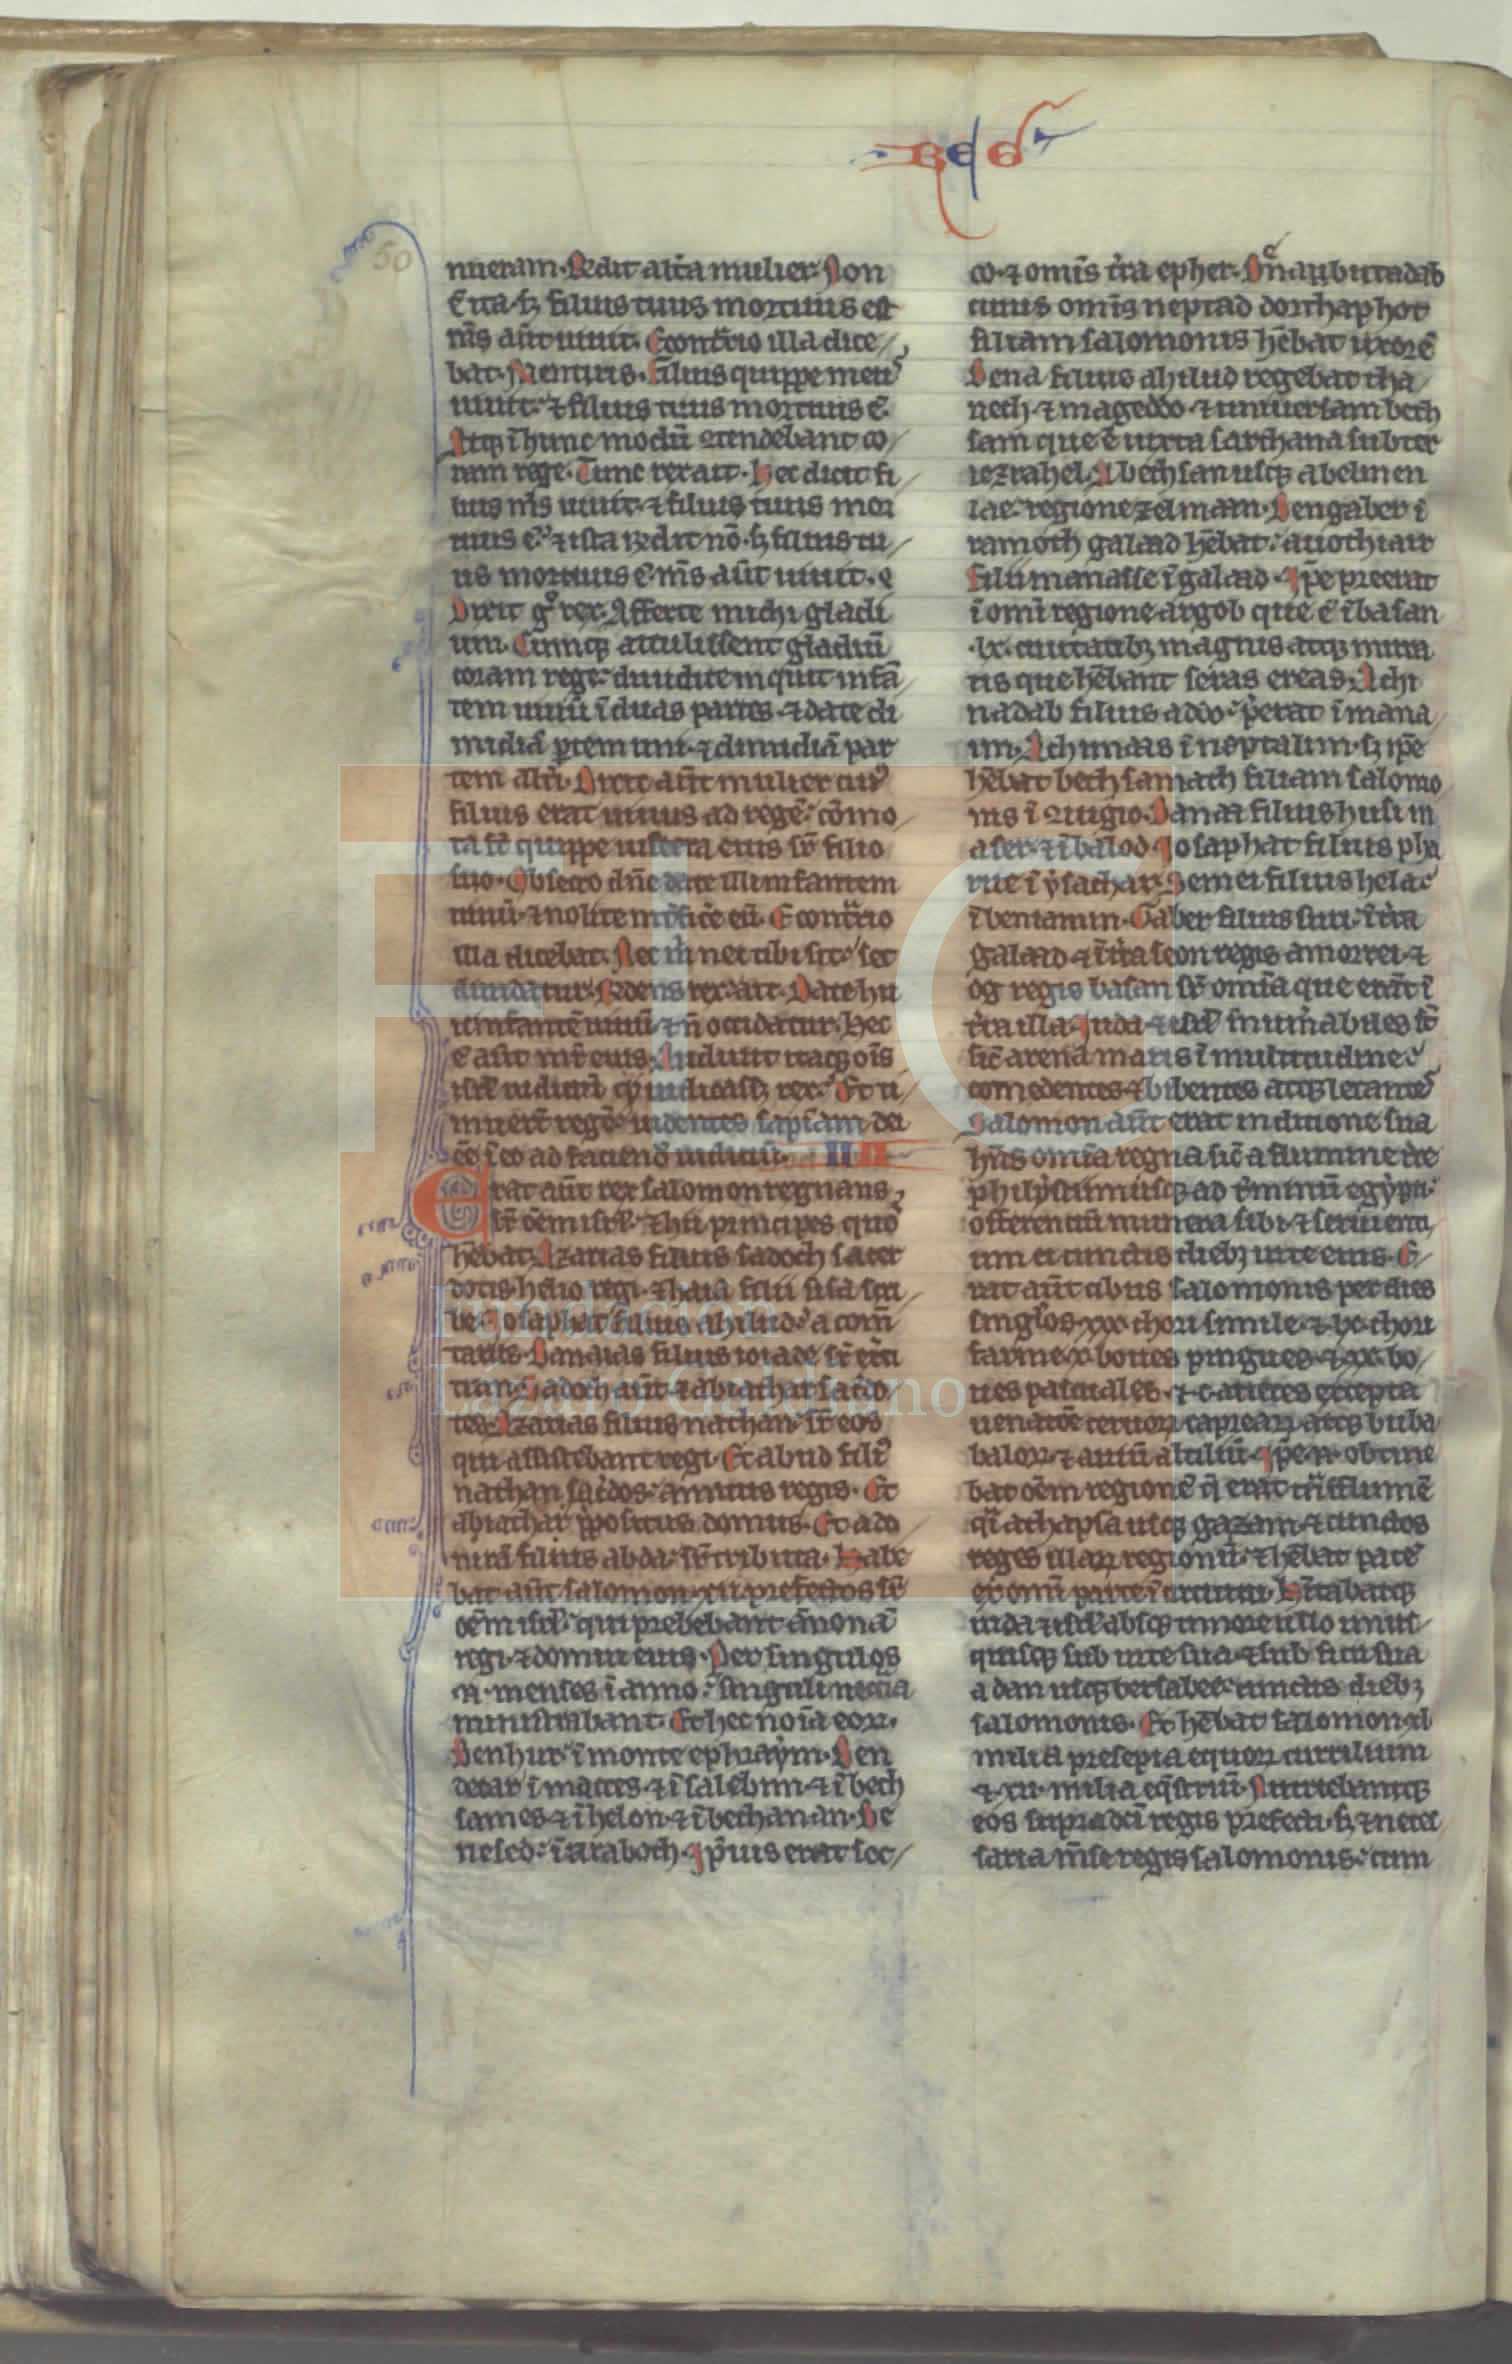 REG
50
nueram. Redit alt̃a mulier. Non
ẽ ita. sꝫ filius tuus mortuus est
m̃s aũt uiuit. Econtr̃io illa dice
bat. Mentiris. Filius quippe meus
uiuit. ⁊ filius tuus mortuus ẽ.
Atqꝫ ĩ hunc modũ ꝯtendebant co
ram rege. Tunc rex ait. Hec dicit fi
lius m̃s uiuit. ⁊ filius tuus mor
tuus ẽ. ⁊ ista r̃dit nõ. sꝫ filius tu
us mortuus ẽ. m̃s aũt uiuit.
Dixit gͦ rex. Afferte michi gladi
um. Cumqꝫ attulissent gladiũ
coram rege. diuidite inquit infã
tem uiuũ ĩ duas partes. ⁊ date di
midiã ꝑtem uni. ⁊ dimidiã par
tem alt̃i. Dixit aũt mulier cuiꝰ
filius erat uiuus ad regẽ. cõmo
ta st̃ quippe uiscera eius sr̃ filio
suo. Obsecro dñe date illi infantem
uiuũ. ⁊ nolite int̃fic̃e eũ. Econtr̃io
illa dicebat. Nec m̃ nec tibi sit. set
diuidatur. Rñdens rex ait. Date hu
ic infantẽ uiuũ. ⁊ ñ occidatur. Hec
ẽ aũt mr̃ eius. Audiuit itaqꝫ oĩs
isrl̃ iudiciũ qͦ iudicassꝫ rex. Et ti
muer̃t regẽ. uidentes sapĩam dei
eẽ ĩ eo ad faciendͦ iudiciũ. IIII
Erat aũt rex salomon regnans
sr̃ oẽm isrl̃. ⁊ hii principes quos
hẽbat. Azarias filius sadoch sacer
dotis. helio regi. ⁊ haia filii sisa scri
be. Iosaphat filius ahilud. a com̃
tariis. Banaias filius ioiade sr̃ exͤrci
tum. Sadoch aũt ⁊ abiathar sac̃do
tes. Azarias filius nathan. sr̃ eos
qui assistebant regi. Et abud filiꝰ
nathan sac̃dos. amicus regis. Et
abiathar p̃positus domus. Et ado
nirã filius abda. sr̃ tributa. Habe
bat aũt salomon xii prefectos sr̃
oẽm isrl̃. qui prebebant ãnonã
regi. ⁊ domui eius. Per singulos
.n. menses ĩ anno. singuli necc̃ia
ministrabant. Et hec noĩa eoꝝ.
Benhur. ĩ monte ephraym. Ben
decar ĩ macces. ⁊ ĩ salebim. ⁊ ĩ beth
sames. ⁊ ĩ helon. ⁊ ĩ bethanan. Be
nesed. ĩ araboth. Ip̃ius erat soc
co. ⁊ omĩs t̃ra epher. Benabinadab
cuius omĩs neptad dor. thaphet
filiam salomonis hẽbat uxorẽ
Bena filius ahilud regebat tha
nech. ⁊ mageddo. ⁊ uniuersam beth
sam que ẽ iuxta sarthana subter
iezrahel. A bethsan usqꝫ abelmeu
lae. regione zelmaan. Bengaber ĩ
ramoth galaad hẽbat. auothiair
filii manasse ĩ galaad. Ip̃e preerat
ĩ omĩ regione argob que ẽ ĩ basan
.lx. ciuitatibꝫ magnis atqꝫ mura
tis que hẽbant seras ereas. Achi
nadab filius addo. p̃erat ĩ mana
im. Achimaas ĩ neptalim. sꝫ ip̃e
hẽbat beth samath filiam salomo
nis ĩ ꝯiugio. Banaa filius husi in
aser. ⁊ ĩ balod. Iosaphat filius pha
rue ĩ ysachar. Semei filius hela.
ĩ beniamin. Gaber filius suri. ĩ t̃ra
galaad. ⁊ ĩ t̃ra seon regis amorrei. ⁊
og regis basan. sr̃ omĩa que erãt ĩ
t̃ra illa. Iuda. ⁊ isrl̃ innum̃abiles st̃
sic̃ arena maris ĩ multitudine.
comedentes. ⁊ bibentes atqꝫ letantes
Salomon aũt erat in ditione sua
hñs omĩa regna sic̃ a flumine t̃re
philystiim usqꝫ ad t̃minũ egypti.
offerentiũ munera sibi. ⁊ seruienti
um ei cunctis diebꝫ uite eius. E
rat aũt cibus salomonis per dies
singͦlos. xxx. chori simile. ⁊ lx. chori
farine. x. boues pingues. ⁊ xx. bo
ues pascuales. ⁊ c. arietes excepta
uenatiõe ceruoꝝ capreaꝝ atqꝫ buba
baloꝝ. ⁊ auiũ altiliũ. Ip̃e .n. obtine
bat oẽm regionẽ q̃ erat tr̃s flumẽ
q̃i a thapsa usqꝫ gazam. ⁊ cunctos
reges illaꝝ regionũ. ⁊ hẽbat pacẽ
ex omĩ parte ĩ circuitu. Hĩtabatqꝫ
iuda ⁊ isrl̃ absqꝫ timore ullo unus
quisqꝫ sub uite sua. ⁊ sub ficu sua
a dan usqꝫ bersabee. cunctis diebꝫ
salomonis. Et hẽbat salomon xl
milia presepia equoꝝ currilium
⁊ xii. milia eq̃striũ. Nutriebantqꝫ
eos supradc̃i regis prefecti. sꝫ ⁊ neces
saria m̃se regis salomonis. cum
FLG
Fundación
Lázaro Galdiano